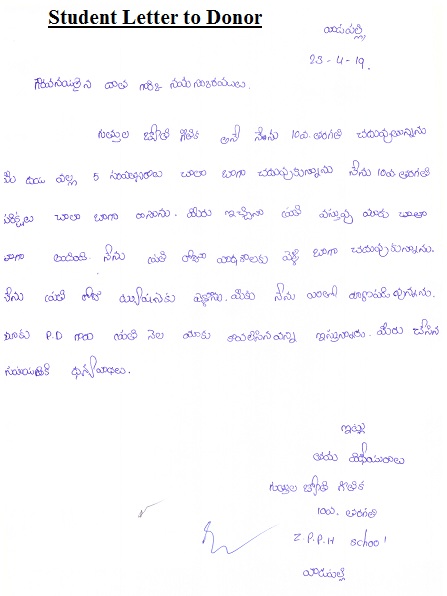 Student Letter to Donor
యాడపల్లి
23-4-19.
గౌరవనీయులైన దాత గారికి నమస్కారములు.
జ్యోతి గీతిక అనే నేను 10వ. తరగతి చదువుతున్నాను
మీ దయ వల్ల 5 సంవత్సరాలు చాలా బాగా చదువుకున్నాను నేను 10వ. తరగతి
పరీక్షలు చాలా బాగా రాసాను. మీరు ఇచ్చిన ప్రతి వస్తువు మాకు చాలా
బాగా ఉంది. నేను ప్రతి రోజు పాఠశాలకు వెళ్లి బాగా చదువుకున్నాను.
నేను ప్రతి రోజు ట్యూషన్‌కు వెళ్లాను. మీకు నేను ఎంతో రుణపడి వున్నాను.
మాకు P.D గారు ప్రతి నెల మాకు కావలసినవన్ని ఇస్తున్నారు. మీరు చేసిన
సహాయానికి ధన్యవాదాలు.
ఇట్లు
తమ విధేయురాలు
జ్యోతి గీతిక
10వ. తరగతి
Z.P.P.H School
యాడపల్లి